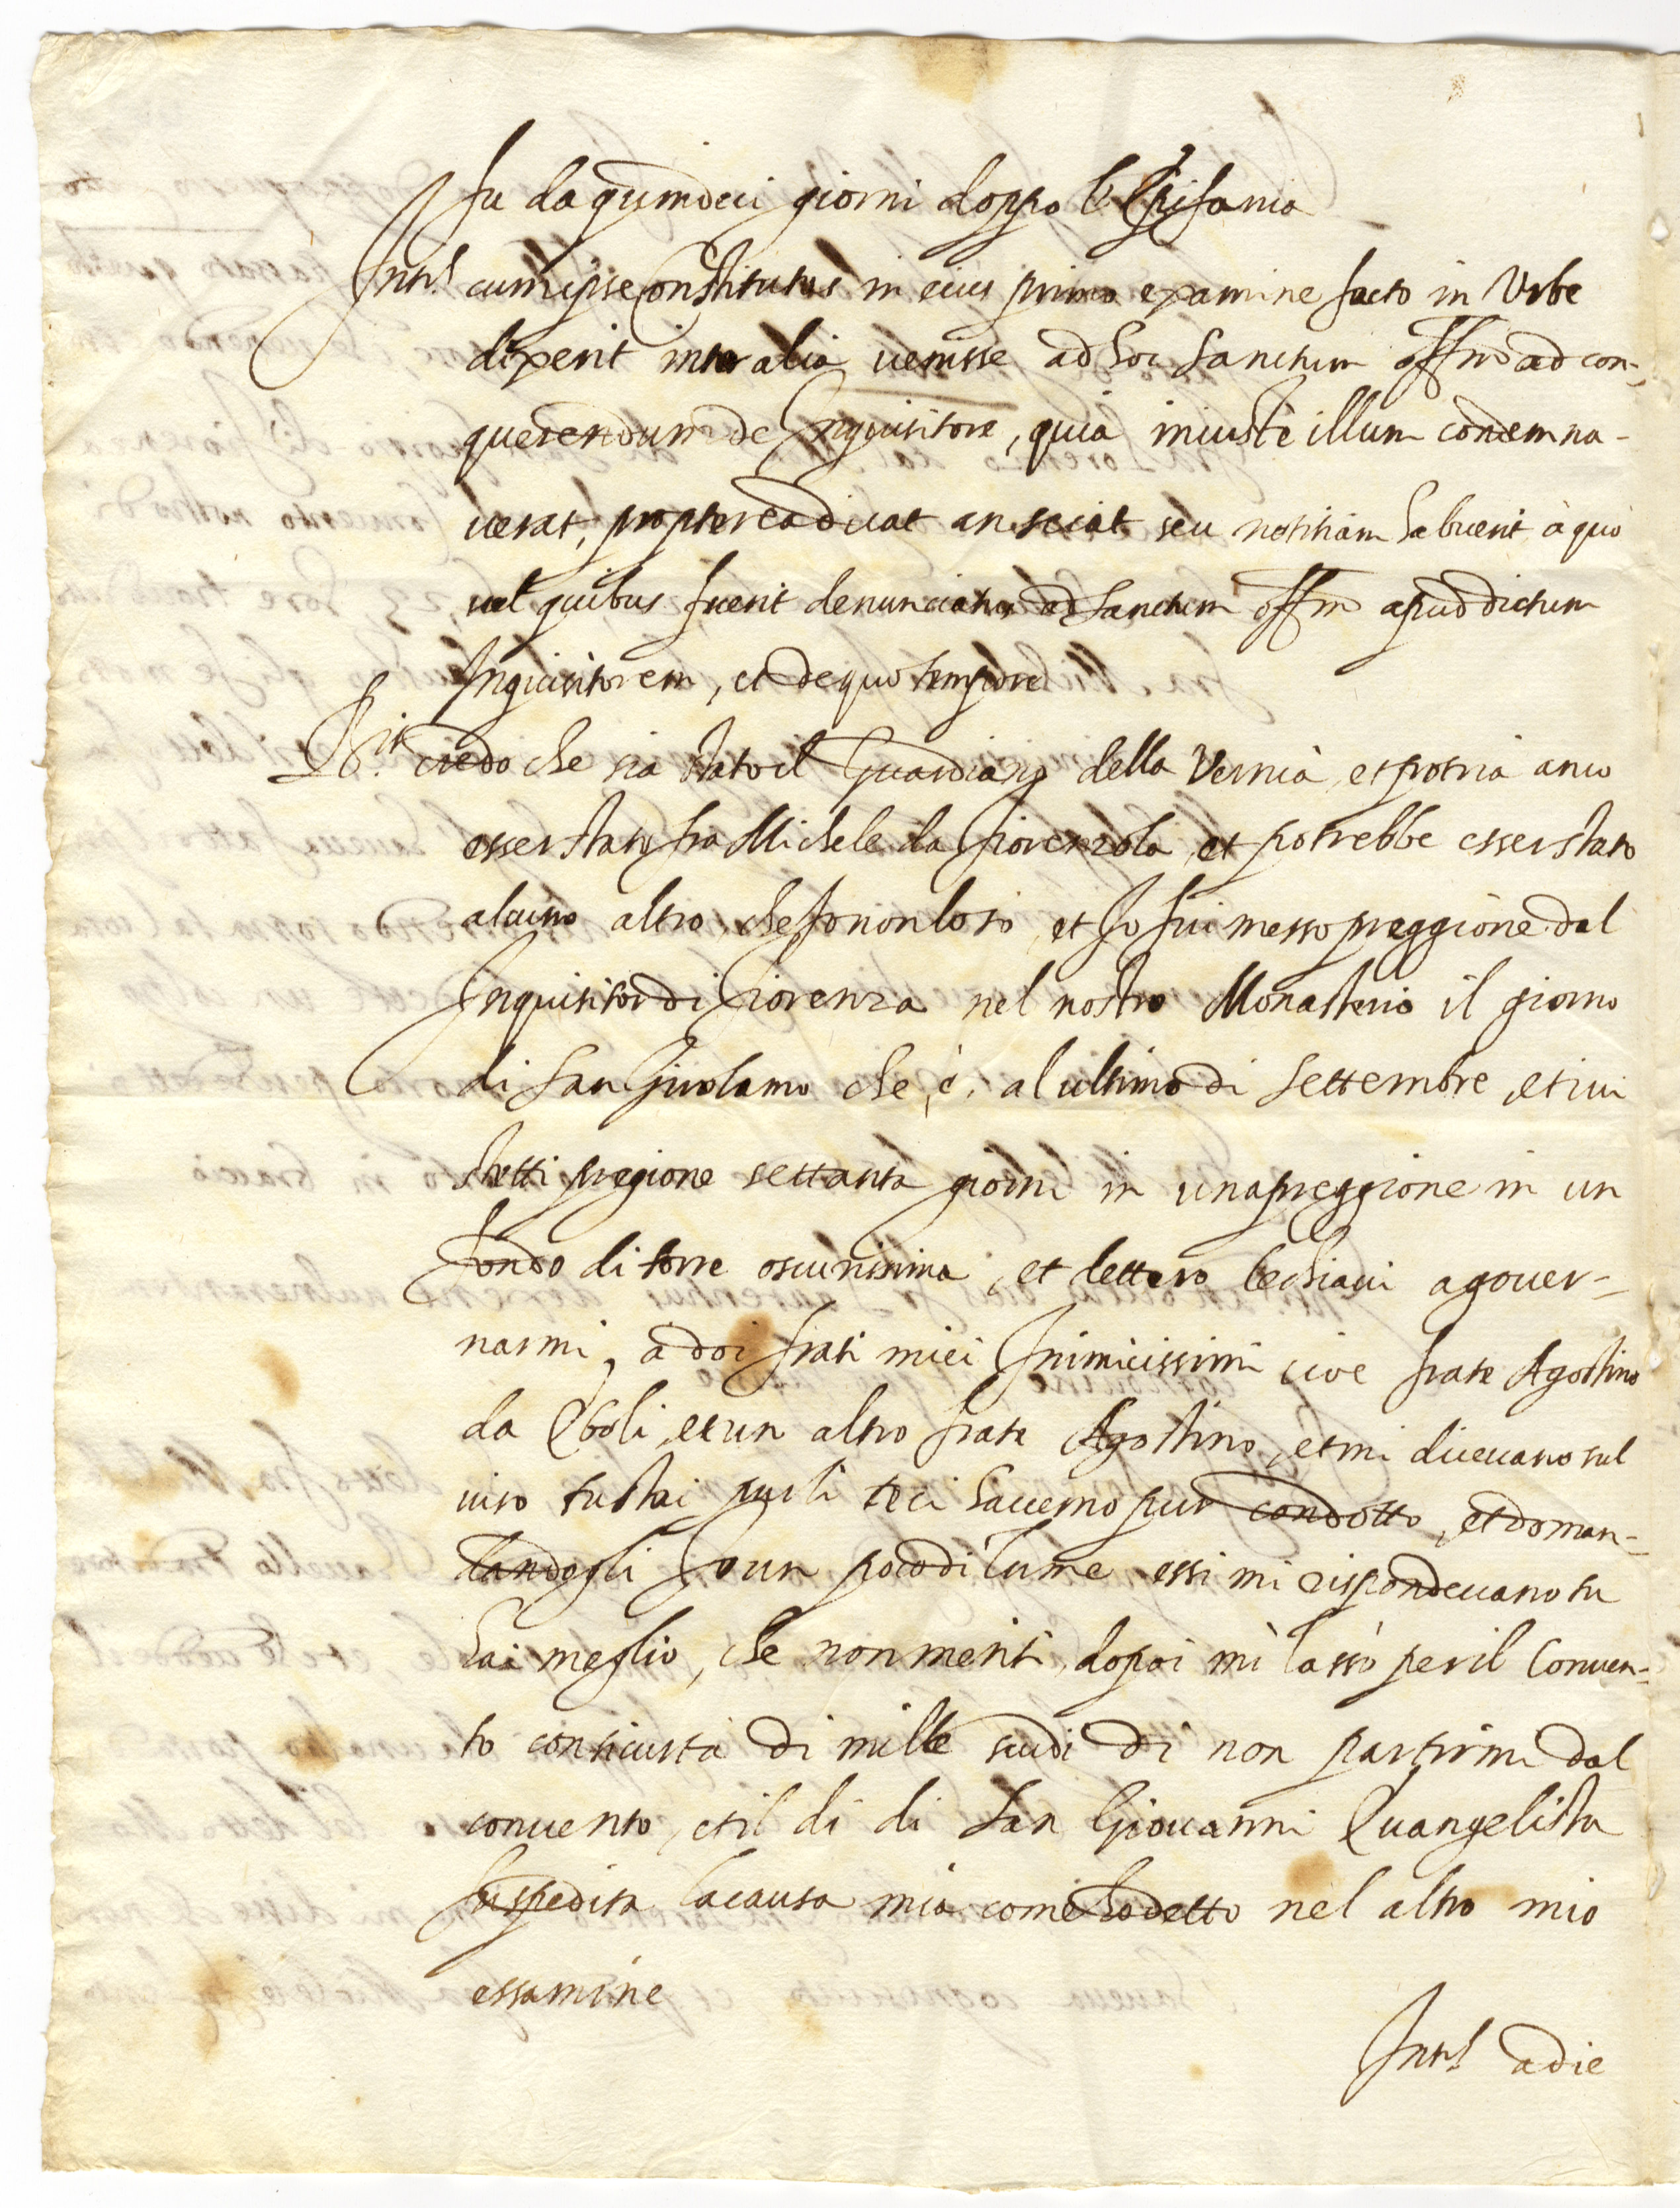 fu da quindeci giorni doppo l'Epifania
Intus cum ipse Constitutus in eius primo examine facto in Urbe
dixerit inter alia venisse ad hoc Sanctum offm ad con-
querendum de Inquisitore, quia iniuste illum condemna-
verat, propterea dicat an sciat seu notitiam habuerit à quo
vel quibus fuerit denunciatus ad Sanctum offm apud dictum
Inquisitorem, et de quo tempore
Rit credo che sia stato il Guardiano della Vernia, et potria anco
esser stato fra Michele da fiorenzola, et potrebbe esser stato
alcuno altro, che Io non lo so, et Io fui messo preggione dal
Inquisitor di fiorenza nel nostro Monasterio il giorno
di San Girolamo che, è, al ultimo di Settembre, et ivi
stetti pregione settanta giorni in una preggione in un
fondo di torre oscurissima, et dettero le chiavi a gover-
narmi, à doi frati miei Inimicissimi cioe frate Agostino
da Eboli, et un altro frate Agostino, et mi dicevano sul
viso tu stai pur li teci havemo pur condotto, et doman-
dandogli Io un poco di lume essi mi rispondevano tu
hai meglio, che non meriti, dopoi mi lassò per il Conven-
to con sicurtà di mille scudi di non partirmi dal
convento, et il di di San Giovanni Evangelista
fu spedita la causa mia come ho detto nel altro mio
essamine
Intus a die